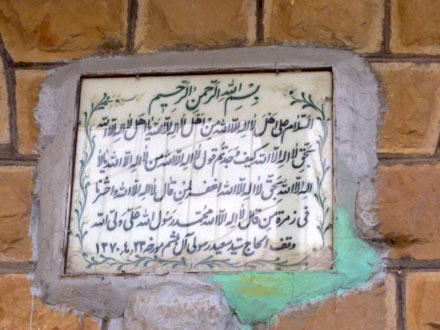 بسم الله الرحمن الرحيم
السلام على اهل لا اله الا الله من اهل لا اله الا الله يا اهل لا اله الا الله
بحق لا اله الا الله كيف وجدتم قول لا اله الا الله من لا اله الا الله يا لا
اله الا الله بحق لا اله الا الله اغفر لمن قال لا اله الا الله واحشرنا
فى زمرة من قال لا اله الا الله محمد رسول الله على ولى الله
وقف الحاج سيد سعيد رسولى آل هاشم مورخه ۱۳۷۰،۹،۲۳